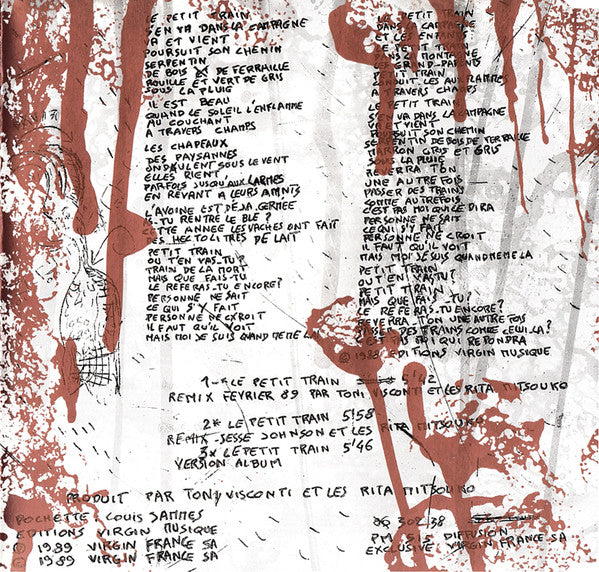 LE PETIT TRAIN
S'EN VA DANS LA CAMPAGNE
VA ET VIENT
POURSUIT SON CHEMIN
SERPENTIN
DE BOIS DE FERRAILLE
ROUILLE ET VERT DE GRIS
SOUS LA PLUIE
IL EST BEAU
QUAND LE SOLEIL L'ENFLAMME
AU COUCHANT
A TRAVERS CHAMPS
LES CHAPEAUX
DES PAYSANNES
ONDULENT SOUS LE VENT
ELLES RIENT,
PARFOIS JUSQU'AUX LARMES
EN REVANT A LEURS AMANTS
L'AVOINE EST DEJA GERMEE
TU RENTRE LE BLE ?
CETTE ANNEE LES VACHES ONT FAIT
DES HECTOLITRES DE LAIT
PETIT TRAIN
OU T'EN VAS-TU ?
TRAIN DE LA MORT
MAIS QUE FAIS-TU
LE REFERAS-TU ENCORE ?
PERSONNE NE SAIT
CE QUI S'Y FAIT
PERSONNE NE CROIT
IL FAUT QU'IL VOIT
MAIS MOI JE SUIS QUAND MEME LA
PETIT TRAIN
DANS LA CAMPAGNE
ET LES ENFANTS
LE PETIT TRAIN
DANS LA MONTAGNE
LES GRAND-PARENTS
PETIT TRAIN
CONDUIT LES AUX FLAMMES
A TRAVERS CHAMPS
LE PETIT TRAIN
S'EN VA DANS LA CAMPAGNE
VA ET VIENT
POURSUIT SON CHEMIN
SERPENTIN DE BOIS DE FERRAILLE
MARRON GRIS ET GRIS
SOUS LA PLUIE
REVERRA TON
UNE AUTRE FOIS
PASSER DES TRAINS
COMME AUTREFOIS
C'EST PAS MOI QUI LE DIRA
PERSONNE NE SAIT
CE QUI S'Y FAIT
PERSONNE NE CROIT
IL FAUT QU'IL VOIT
MAIS MOI JE SUIS QUAND MEME LA
PETIT TRAIN
OU T'EN VAS TU ?
PETIT TRAIN
MAIS QUE FAIS-TU ?
LE REFERAS-TU ENCORE ?
REVERRA-TON UNE AUTRE FOIS
PASSER DES TRAINS COMME CELUI LA ?
C'EST PAS MOI QUI REPONDRA
© 1988 EDITIONS VIRGIN MUSIQUE
1* LE PETIT TRAIN 5'42
REMIX FEVRIER 89 PAR TONY VISCONTI ET LES RITA MITSOUKO
2* LE PETIT TRAIN 5'58
REMIX JESSE JOHNSON ET LES RITA MITSOUKO
3* LE PETIT TRAIN 5'46
VERSION ALBUM
PRODUIT PAR TONY VISCONTI ET LES RITA MITSOUKO
POCHETTE: LOUIS JAMMES
EDITIONS VIRGIN MUSIQUE
1989 VIRGIN FRANCE SA
1989 VIRGIN FRANCE SA
302 38
PM 515 DIFFUSION
EXCLUSIVE VIRGIN FRANCE SA